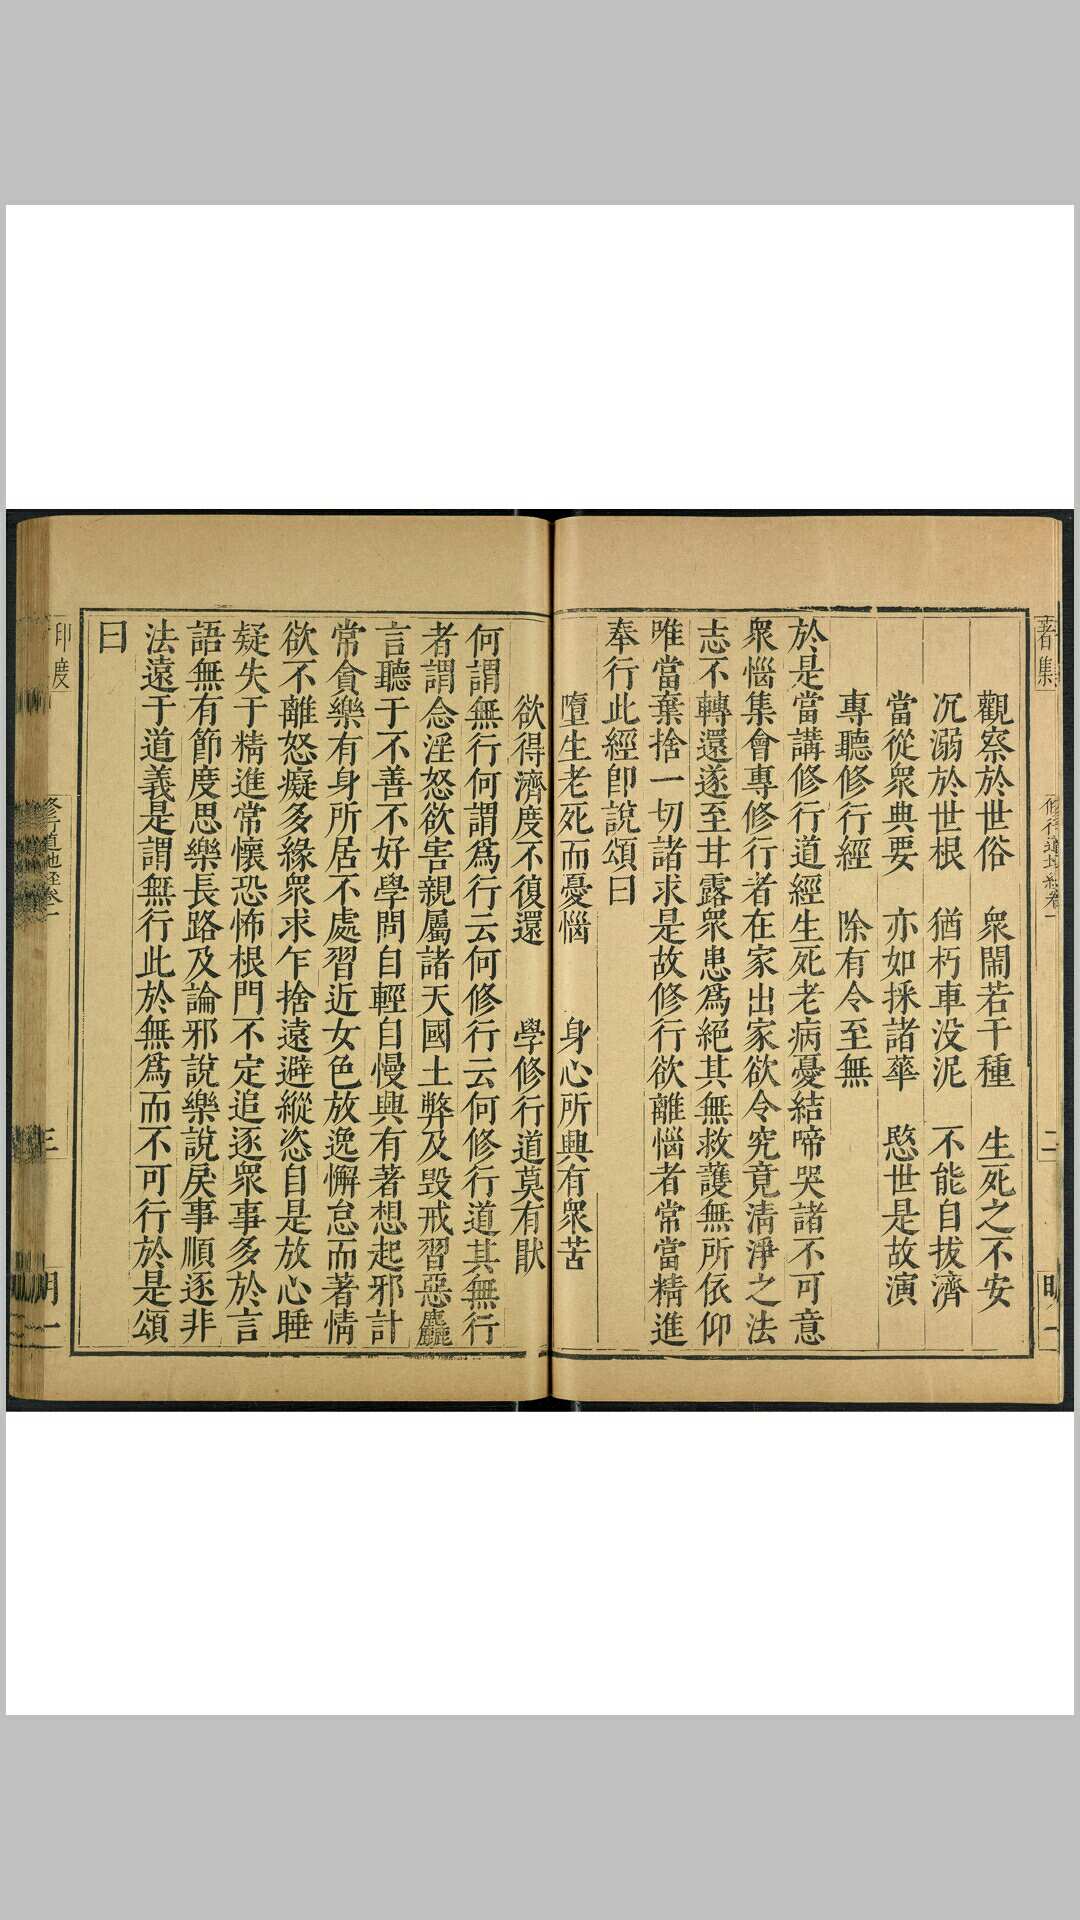 著集
修行道地經卷一
二
明一
觀察於世俗　衆閙若干種　生死之不安
沉溺於世根　猶朽車没泥　不能自拔濟
當從衆典要　亦如採諸華　愍世是故演
專聽修行經　除有令至無
於是當講修行道經生死老病憂結啼哭諸不可意
衆惱集會專修行者在家出家欲令究竟清淨之法
志不轉還遂至甘露衆患爲絕其無救護無所依仰
唯當棄捨一切諸求是故修行欲離惱者常當精進
奉行此經卽說頌曰
墮生老死而憂惱　身心所興有衆苦
欲得濟度不復還　學修行道莫有猒
何謂無行何謂爲行云何修行云何修行道其無行
者謂念淫怒欲害親屬諸天國土弊及毀戒習惡麤
言聽于不善不好學問自輕自慢興有著想起邪計
常貪樂有身所居不處習近女色放逸懈怠而著情
欲不離怒癡多緣衆求乍捨遠避縱恣自是放心睡
疑失于精進常懷恐怖根門不定追逐衆事多於言
語無有節度思樂長路及論邪說樂說戾事順逐非
法遠于道義是謂無行此於無爲而不可行於是頌
曰
印度
修行道地經卷一
三
明一